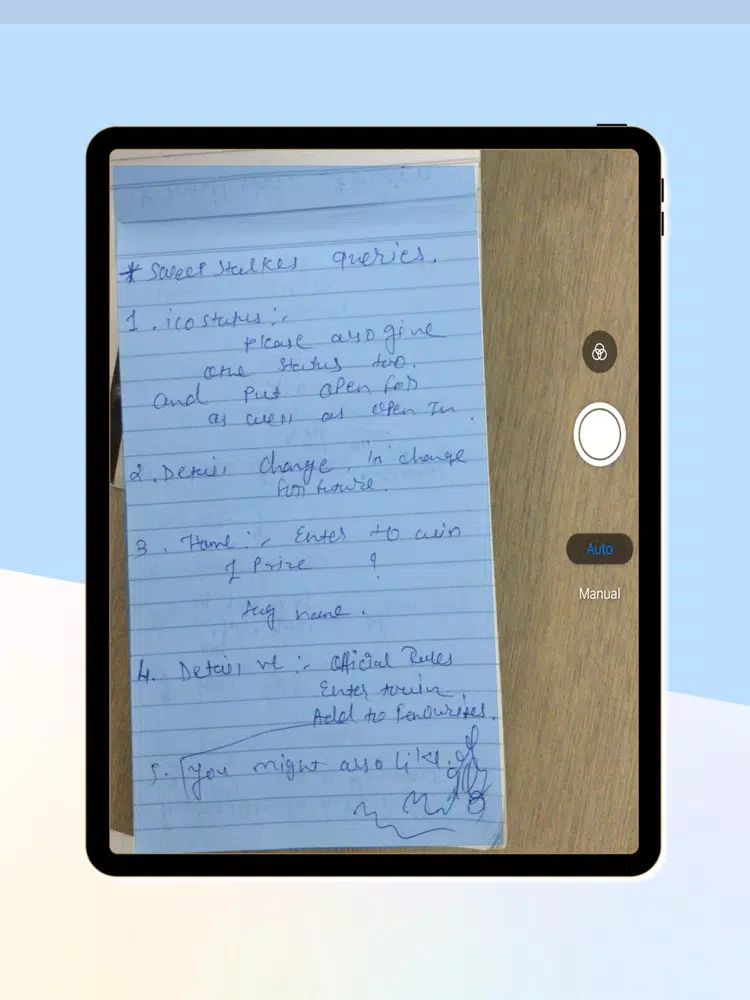 * Sweep stalkes queries.
1. ico status :-
please also give
one status too.
and put open for
as well as open In.
2. Detail change, In change
for future.
3. Home :- Enter to win
1 Prize ?
tag name.
4. Detail :- Official Rules
Enter to win,
Add to Favourites.
5. You might also like.
Auto
Manual